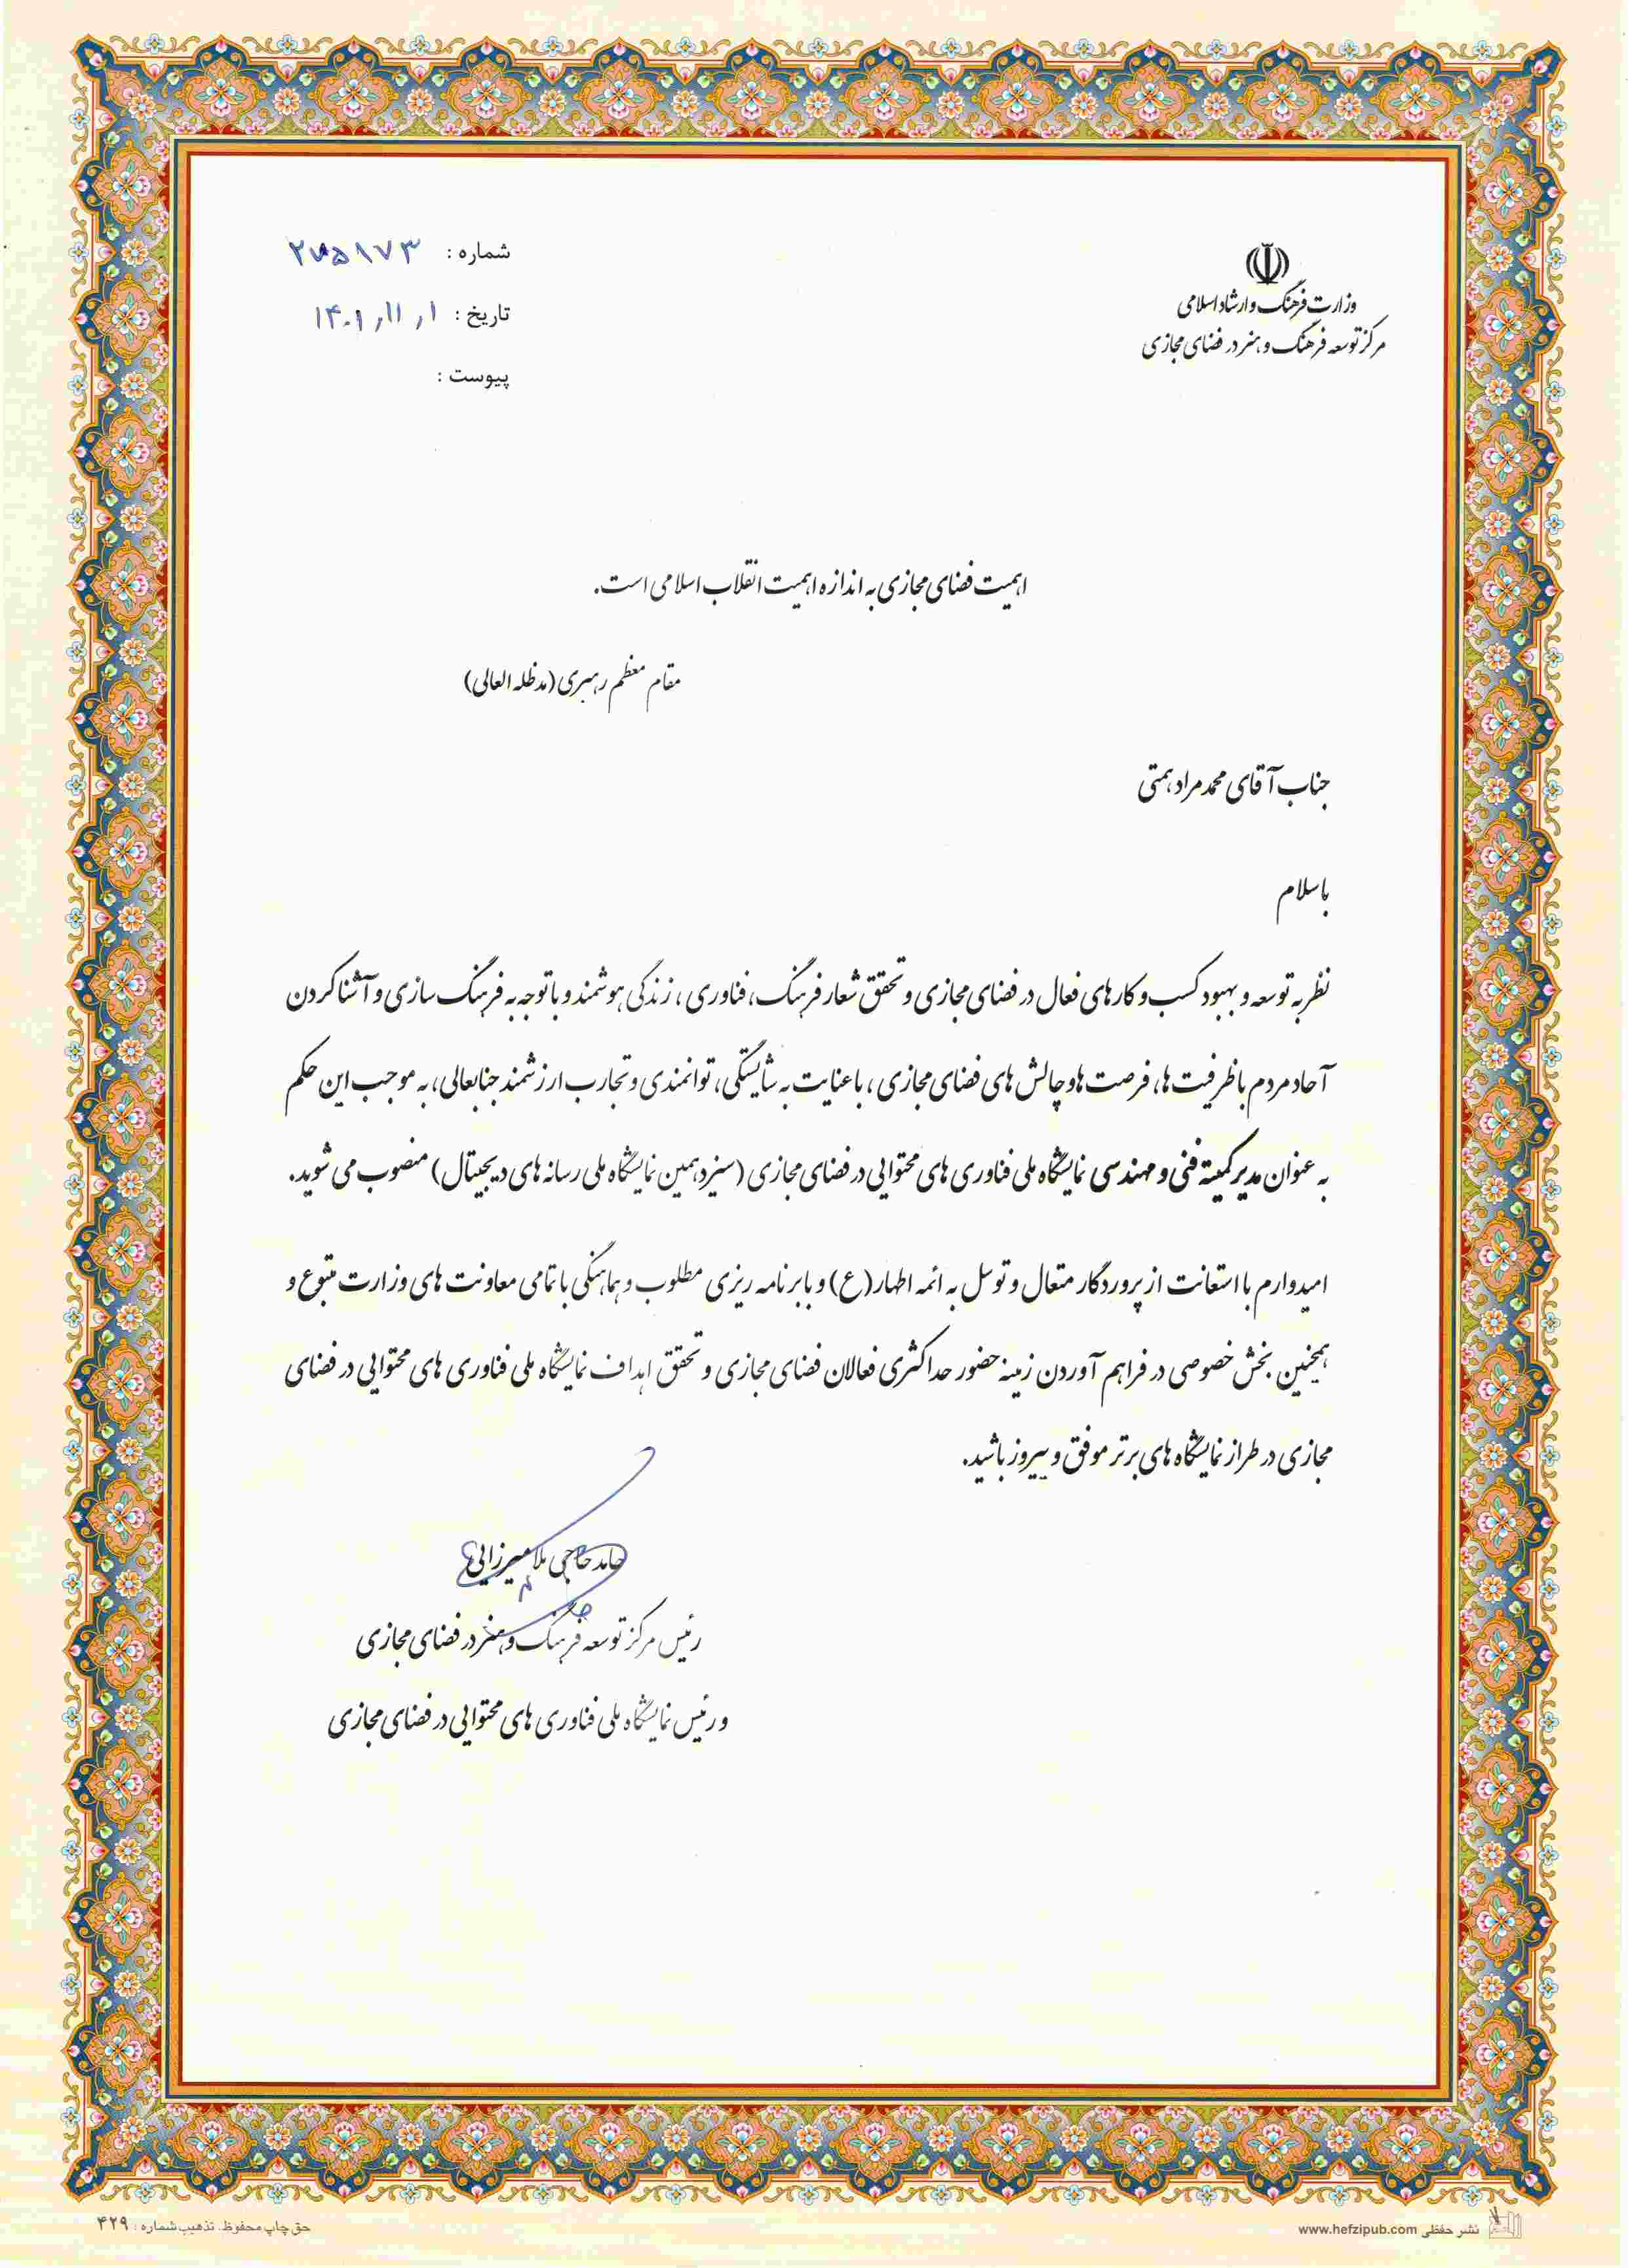 وزارت فرهنگ و ارشاد اسلامی
مرکز توسعه فرهنگ و هنر در فضای مجازی
شماره :
تاریخ : ۱۴۰۱/۱۱/۱
پیوست :
اهمیت فضای مجازی به اندازه اهمیت انقلاب اسلامی است.
مقام معظم رهبری (مدظله العالی)
جناب آقای محمد مراد همتی
با سلام
نظر به توسعه و بهبود کسب و کارهای فعال در فضای مجازی و تحقق شعار فرهنگ، فناوری، زندگی هوشمند و با توجه به فرهنگ سازی و آشنا کردن
آحاد مردم با ظرفیت ها، فرصت ها و چالش های فضای مجازی، با عنایت به شایستگی، توانمندی و تجارب ارزشمند جنابعالی، به موجب این حکم
به عنوان مدیر کمیته فنی و مهندسی نمایشگاه ملی فناوری های محتوایی در فضای مجازی (سیزدهمین نمایشگاه ملی رسانه های دیجیتال) منصوب می شوید.
امیدوارم با استعانت از پروردگار متعال و توسل به ائمه اطهار (ع) و با برنامه ریزی مطلوب و هماهنگی با تمامی معاونت های وزارت متبوع و
همچنین بخش خصوصی در فراهم آوردن زمینه حضور حداکثری فعالان فضای مجازی و تحقق اهداف نمایشگاه ملی فناوری های محتوایی در فضای
مجازی در طراز نمایشگاه های برتر موفق و پیروز باشید.
حامد حاجی ملا میرزایی
رئیس مرکز توسعه فرهنگ و هنر در فضای مجازی
و رئیس نمایشگاه ملی فناوری های محتوایی در فضای مجازی
نشر حفظی www.hefzipub.com
حق چاپ محفوظ. تذهیب شماره : ۴۲۹